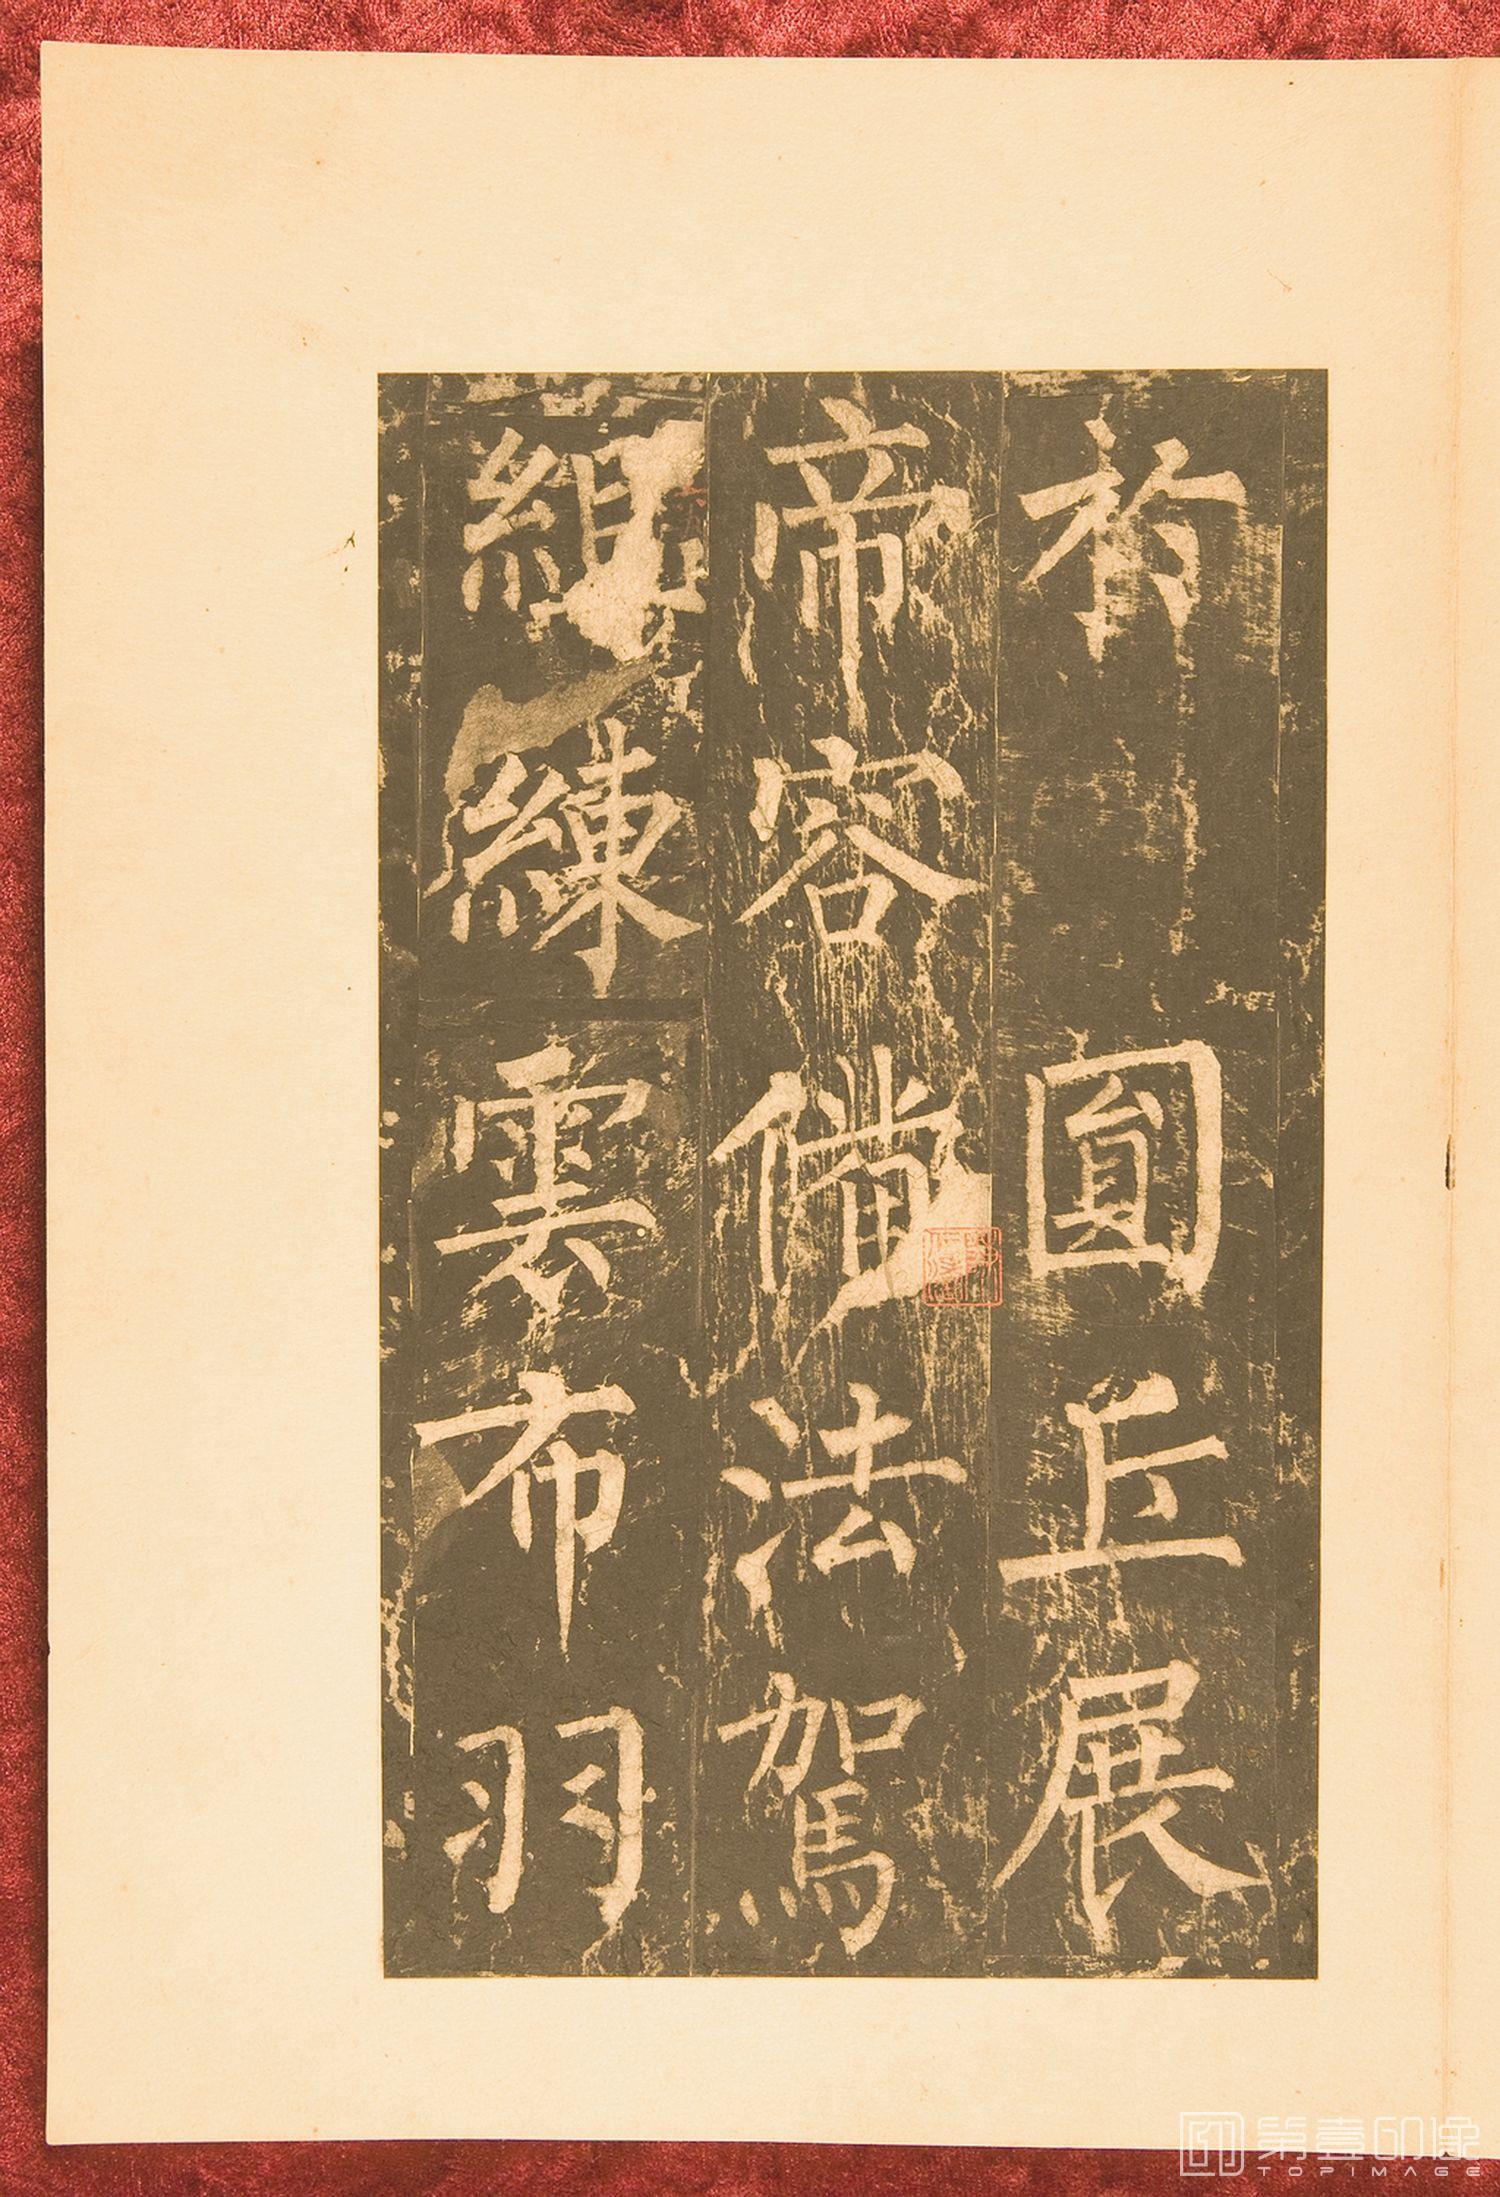 礿圓丘展
帝容俻法駕
組練雲布羽
第壹印像
TOPIMAGE